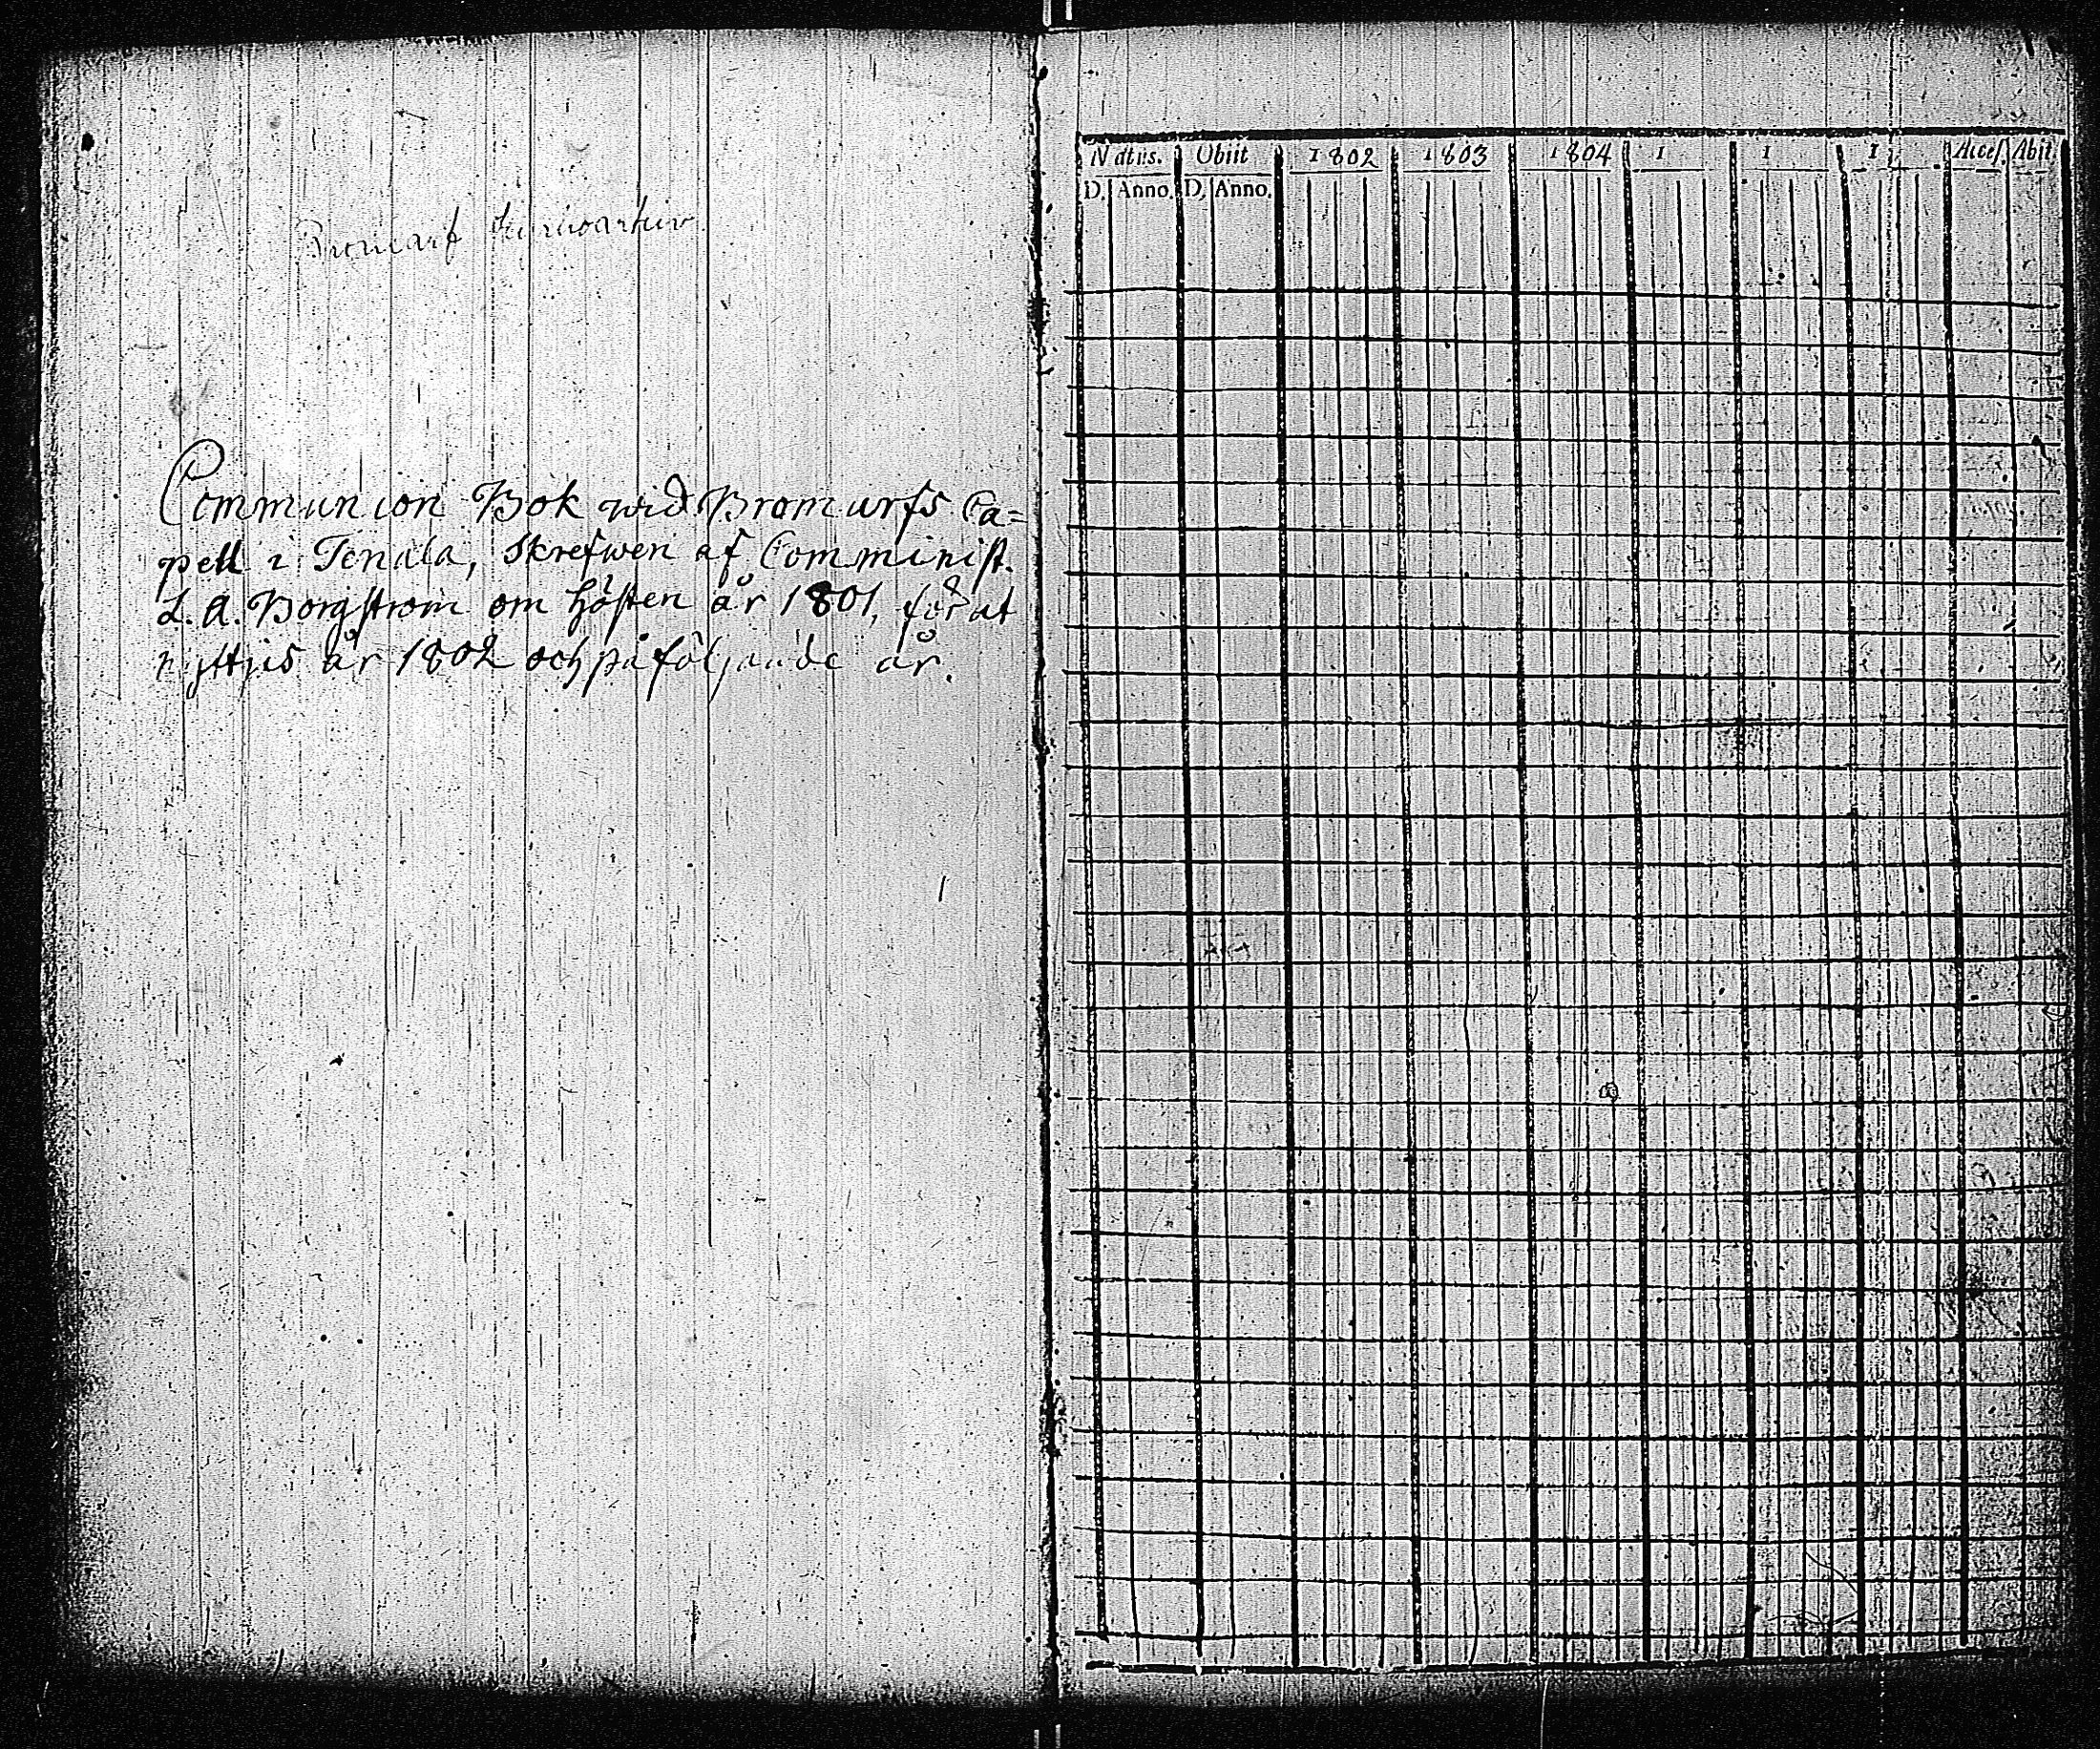 Bromarf kyrkoarkiv.
Communion Bok wid Bromarfs Ca=
pell i Tenala, skrefwen af Comminist.
L. A. Borgström om hösten år 1801, för at
nyttjas år 1802 och påföljande år.
Natus. Obiit 1802 1803 1804 1 1 1 Acces. Abit
D. Anno. D. Anno.